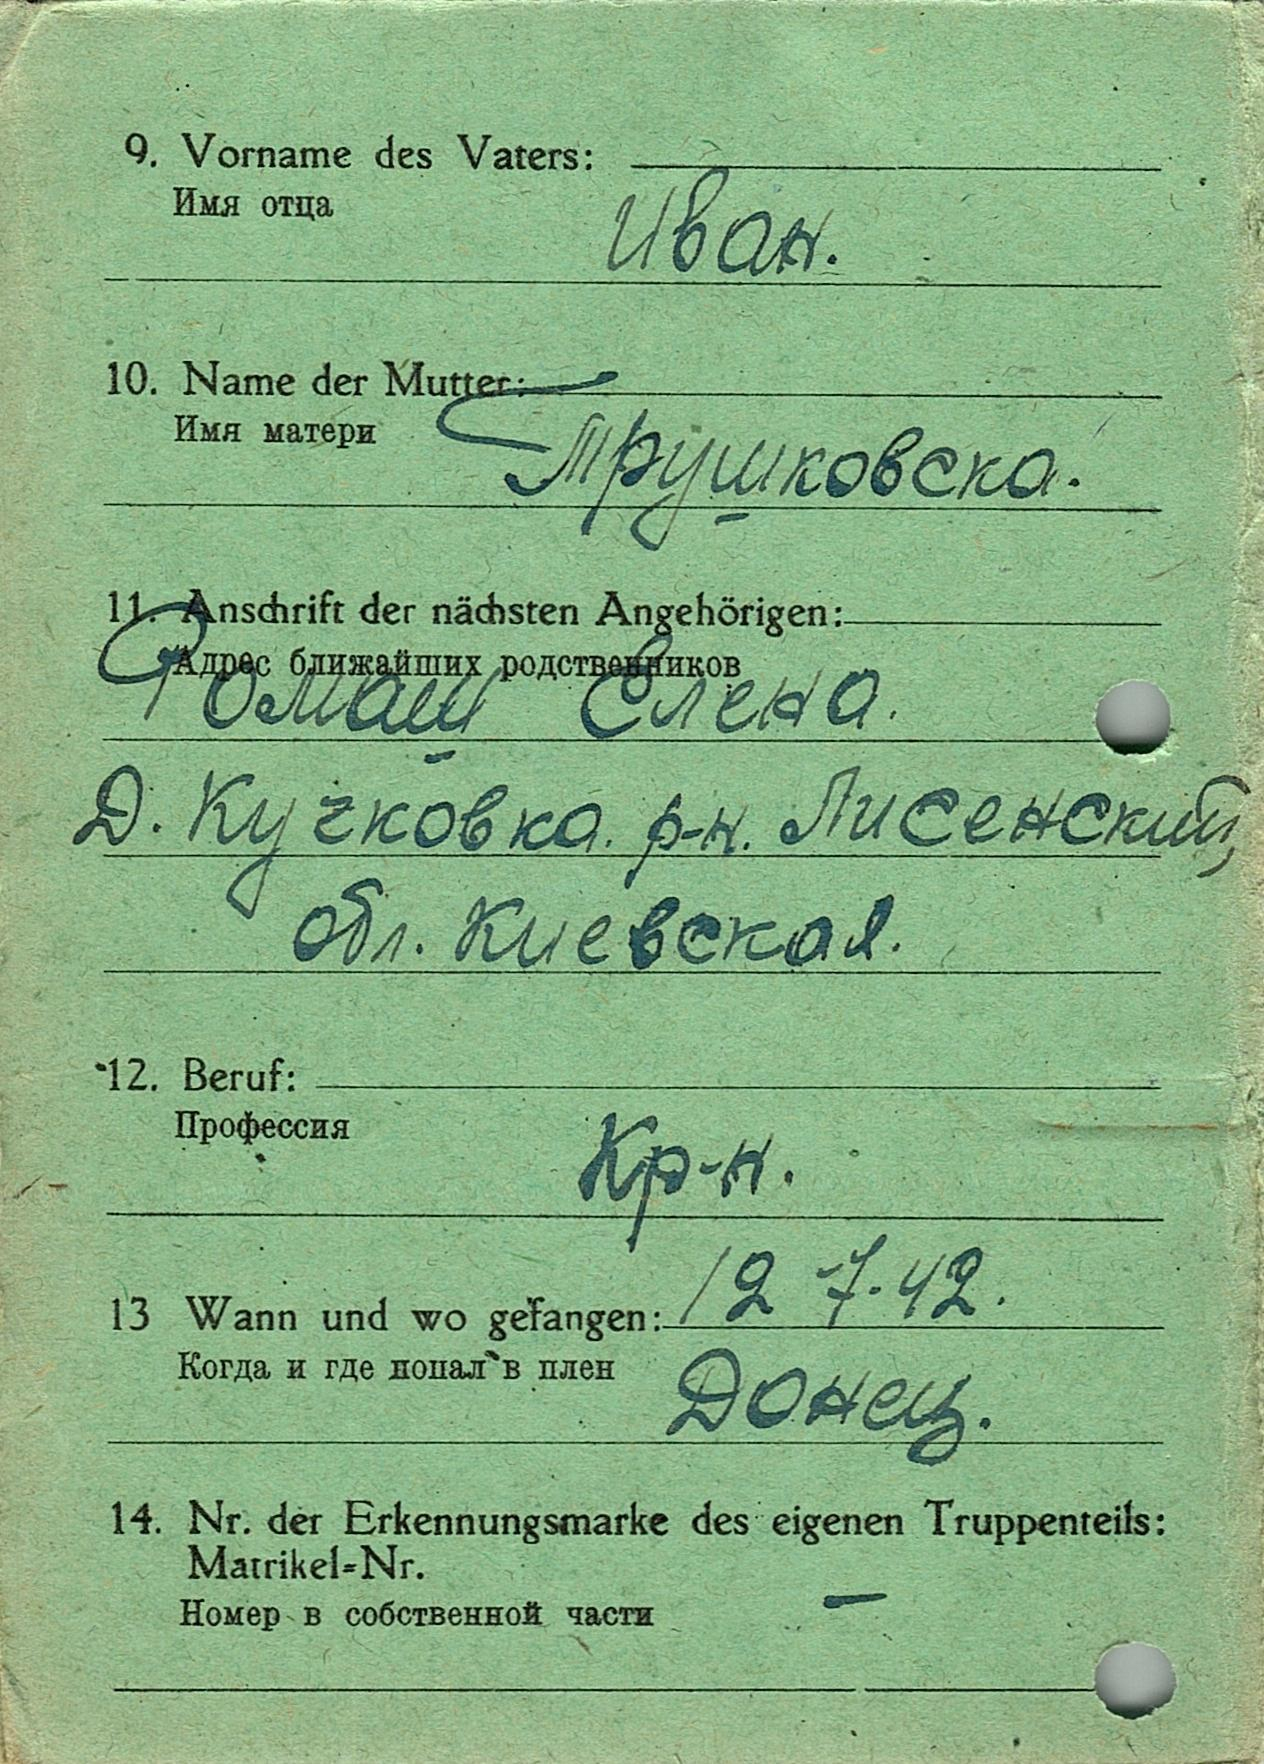 9. Vorname des Vaters:
Имя отца
Иван.
10. Name der Mutter:
Имя матери
Трушковска.
11. Anschrift der nächsten Angehörigen:
Адрес ближайших родственников
Ромаш Елена.
Д. Кучковка. р-н. Лисенский,
обл. Киевская.
12. Beruf:
Профессия
Кр-н.
13 Wann und wo gefangen: 12-7-42.
Когда и где попал в плен
Донец.
14. Nr. der Erkennungsmarke des eigenen Truppenteils:
Matrikel-Nr.
Номер в собственной части –